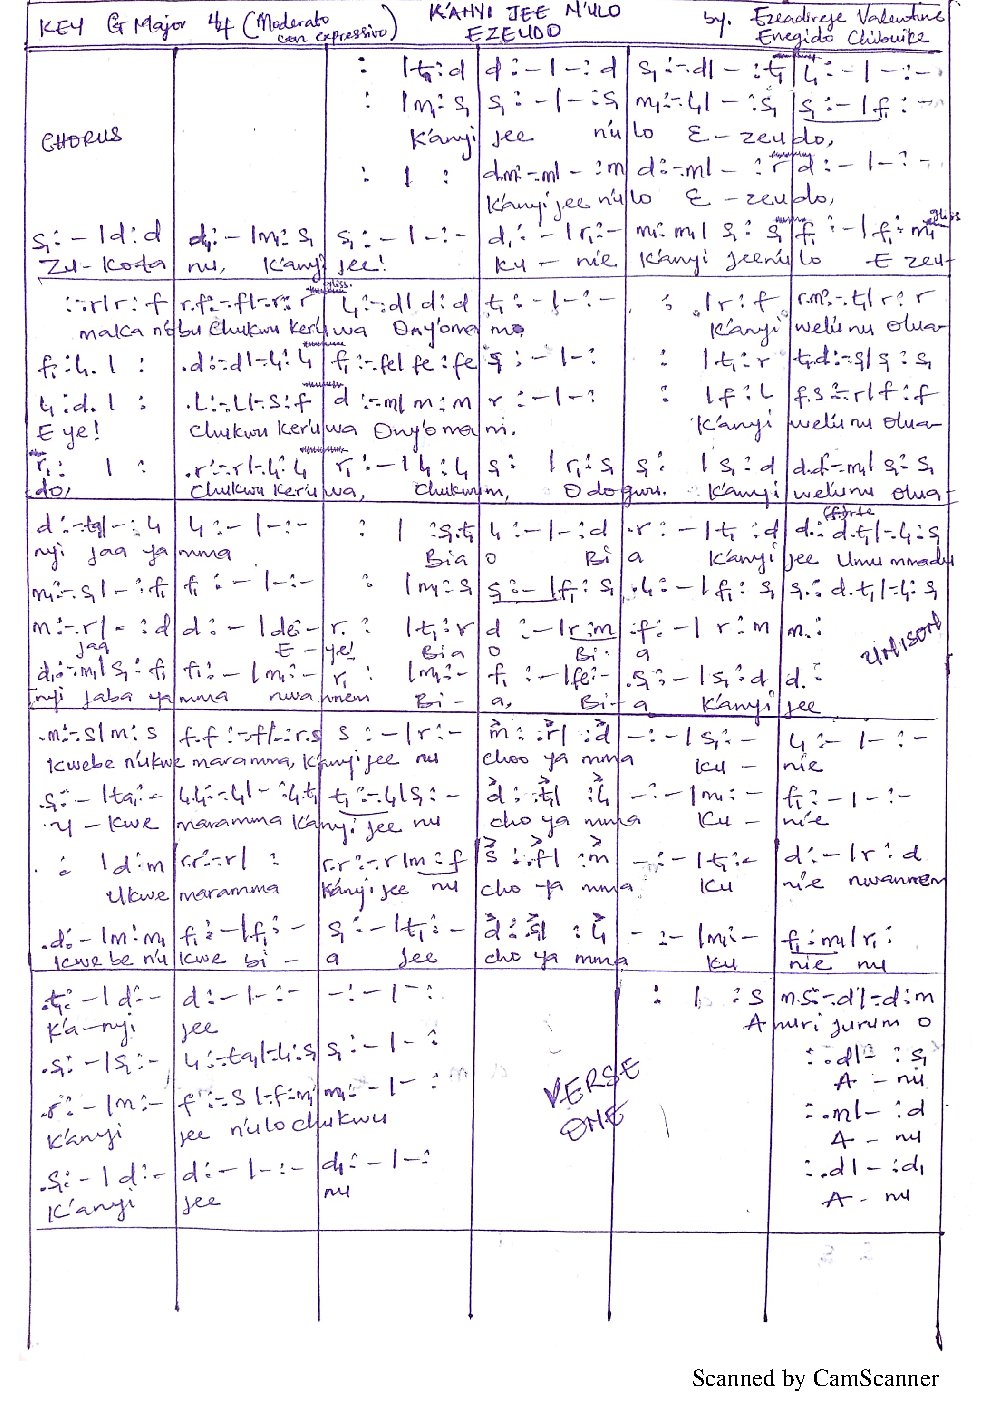 KEY G Major 4/4 (Moderato con expressivo) K'ANYI JEE N'ULO EZEUDO by. Ezeadireje Valentine Enegido Chibuike
: |t₁:d d:-|-:d s₁:-.d|-:t₁ l₁:-|-:-
: |m₁:s₁ s₁:-|-:s₁ m₁:-.l₁|-:s₁ s₁:-|f₁:-
CHORUS K'anyi jee n'u lo E - zeu do,
: | : d.m:-.m|-:m d:-.m|-:r d:-|-:-
K'anyi jee n'u lo E - zeu do,
s₁:-|d:d d₁:-|m₁:s₁ s₁:-|-:- d₁:-|r₁:- m₁:m₁|s₁:s₁ f₁:-|f₁:m₁
Zu - kota nu, K'anyi jee! Ku - nie K'anyi jeen'u lo E zeu-
:-.r|r:f r.f:-.f|-.r:r l₁:-.d|d:d t₁:-|-:- : .|r:f r.m:-.t₁|r:r
maka n'obu Chukwu keru wa Ony'oma mo K'anyi welunu olua-
f₁:l₁.| : .d:-.d|-.l₁:l₁ f₁:-.fe|fe:fe s₁:-|-: : |t₁:r t₁.d:-.s₁|s₁:s₁
l₁:d.| : .l:-.l|-.s:f d:-.m|m:m r:-|-: : |f:l f.s:-.r|f:f
E ye! Chukwu ker'u wa Ony'oma m. K'anyi welunu olua-
r₁: | : .r:-.r|-.l₁:l₁ r₁:-|l₁:l₁ s₁: |r₁:s₁ s₁: |s₁:d d.d:-.m₁|s₁:s₁
do, Chukwu ker'u wa, Chukwum, Odogwu. K'anyi welunu olua-
d:-.ta₁|-:l₁ l₁:-|-:- : | :s₁.t₁ l₁:-|-:d .r:-|t₁:d d:d.t₁|-.l₁:s₁
nyi jaa ya mma Bia o Bi a K'anyi jee Umu mmadu
m₁:-.s₁|-:f₁ f₁:-|-:- : |m₁:s₁ s₁:-|f₁:s₁ .l₁:-|f₁:s₁ s₁:d.t₁|-.l₁:s₁
m:-.r|-:d d:-|de:- r: |t₁:r d:-|r:m .f:-|r:m m:
jaa E - ye! Bia o Bi - a UNISON
d:-.m₁|s₁:f₁ f₁:-|m₁:- r₁: |m₁:- f₁:-|fe₁:- .s₁:-|s₁:d d:-
nyi jaba ya mma nwa nnem Bi - a, Bi - a K'anyi jee
.m:-.s|m:s f.f:-.f|-.r.s s:-|r:- m:.r|:d -:-|s₁:- l₁:-|-:-
Kwebe n'ukwe maramma, K'anyi jee nu choo ya mma Ku - nie
.s₁:-|ta₁:- l₁.l₁:-.l₁|-:l₁.t₁ t₁:-.l₁|s₁:- d:.t₁|:l₁ -:-|m₁:- f₁:-|-:-
U - kwe maramma K'anyi jee nu cho ya mma Ku - nie
: |d:m r.r:-.r| : r.r:-.r|m:f s:.f|:m -:-|t₁:- d:-|r:d
Ukwe maramma K'anyi jee nu cho ya mma Ku nie nwannem
.d:-|m:m₁ f₁:-|f₁:- s₁:-|t₁:- d:.s₁|:l₁ -:-|m₁:- f₁:m₁|r₁:
Kwe be n'u kwe bi - a jee cho ya mma Ku nie nu
.t₁:-|d:- d:-|-:- -:-|-: : | :s m.s:-.d|-.d:m
K'a-nyi jee Amuri jurum o
.s₁:-|s₁:- l₁:-.ta₁|-.l₁:s₁ s₁:-|-: :.d|-:s₁
A - nu
.r:-|m:- f:-.s|-.f:m m:-|-: VERSE ONE :.m|-:d
K'anyi jee n'ulo chukwu A - nu
.s₁:-|d:- d:-|-:- d₁:-|-: :.d|-:d₁
K'anyi jee nu A - nu
Scanned by CamScanner